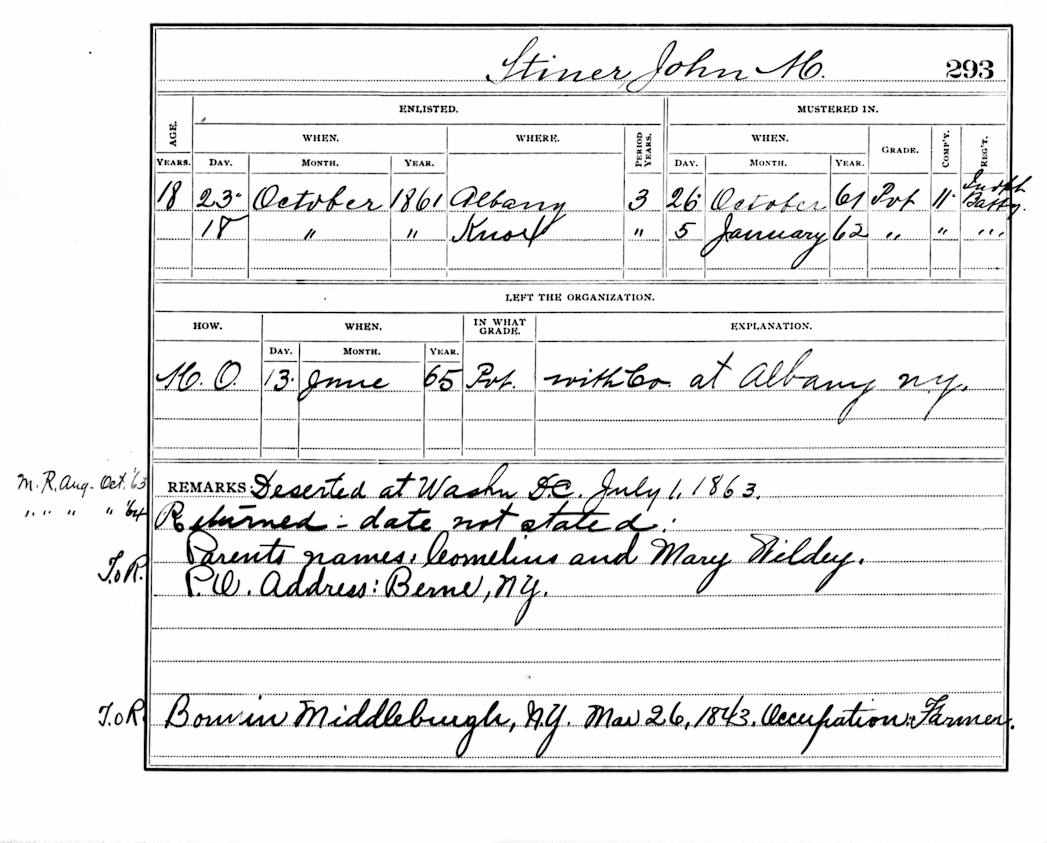 Stiner, John M. 293
ENLISTED. MUSTERED IN.
AGE. WHEN. WHERE. PERIOD YEARS. WHEN. GRADE. COMP'Y. REG'T.
YEARS. DAY. MONTH. YEAR. DAY. MONTH. YEAR.
18 23 October 1861 Albany 3 26 October 61 Pvt 11 Indpt Batty.
18 " " Knox " 5 January 62 " " "
LEFT THE ORGANIZATION.
HOW. WHEN. IN WHAT GRADE. EXPLANATION.
DAY. MONTH. YEAR.
M. O. 13 June 65 Pvt. with Co. at Albany N.Y.
M. R. Aug - Oct. '63 REMARKS: Deserted at Washn D.C. July 1, 1863.
" " " " '64 Returned - date not stated.
Parents names: Cornelius and Mary Wildey.
T. o R. P.O. Address: Berne, N.Y.
T. o R. Born in Middleburgh, N.Y. Mar 26, 1843. Occupation: Farmer.